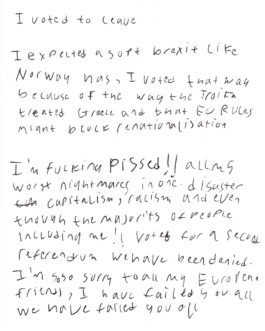 I voted to leave
I expected a soft brexit like
Norway has, I voted that way
because of the way the Troika
treated Greece and that EU Rules
might block renationalisation
I'm fucking pissed!! all my
worst nightmares in one disaster
capitalism, racism and even
though the majority of people
including me!! voted for a second
referendum we have been denied.
I'm soso sorry to all my European
friends, I have failed you all
we have failed you all